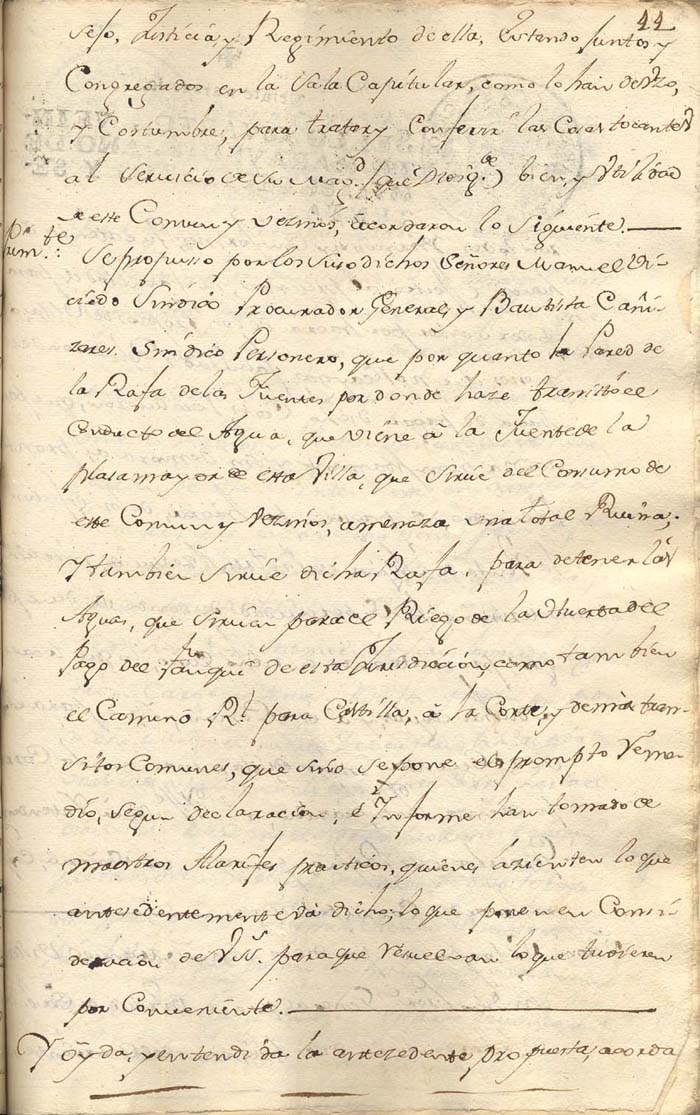 44
sejo, Justicia, y Regimiento de ella, Estando Juntos y
Congregados en la Sala Capitular, como lo han de Vzo,
y Costumbre, para tratar y Conferir las Cosas tocantes
al Servicio de Su Magd. (que Dios ge.) bien, y Vtilidad
de este Comun y Vezinos, acordaron lo Siguiente.
Se propusso por los Susodichos Señores Manuel
Sindico Procurador General, y Bautista Cañi-
zares. Sindico Personero, que por quanto la Pared de
la Rafa de las Fuentes por donde haze transito el
Conducto del Agua, que viene â la Fuente de la
plasa mayor de esta Villa, que sirve del Consumo de
este Comun y Vezinos, amenaza una total Ruina;
Y tambien sirve dicha Rafa, para detener las
Aguas, que sirven para el Riego de la Huerta del
Pago del de esta Jurisdicion, como tambien
el Camino Rl. para Castilla, â la Corte, y demas tran-
sitos Comunes, que sino se pone el prompto Reme-
dio, segun declaracion, è Informe han tomado de
maestros Alarifes practicos, quienes asienten lo que
antesedentemente và dicho; lo que ponen en Consi-
deracion de VS. para que resuelvan lo que tuvieren
por Conveniente.
Y Oÿda, y entendida la antezedente propuesta, acorda